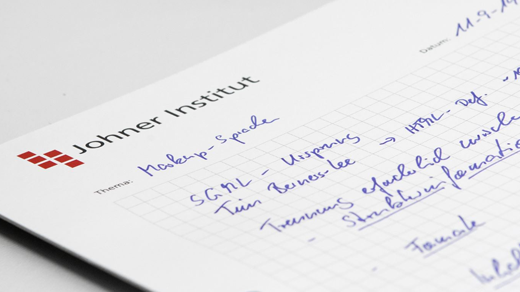 Datum: 11-9-19
Johner Institut
Thema: Markup-Sprache
SGML - Ursprung
Tim Berners-Lee → HTML-Def. -
Trennung erforderlich zwischen
- Strukturinformation
- Formate
Inhalt